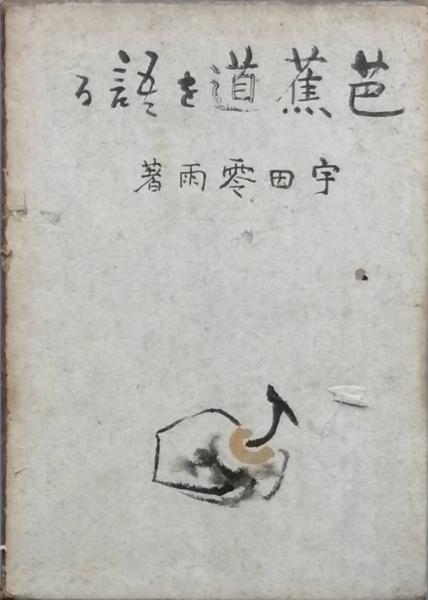 芭蕉道を語る
宇田零雨著